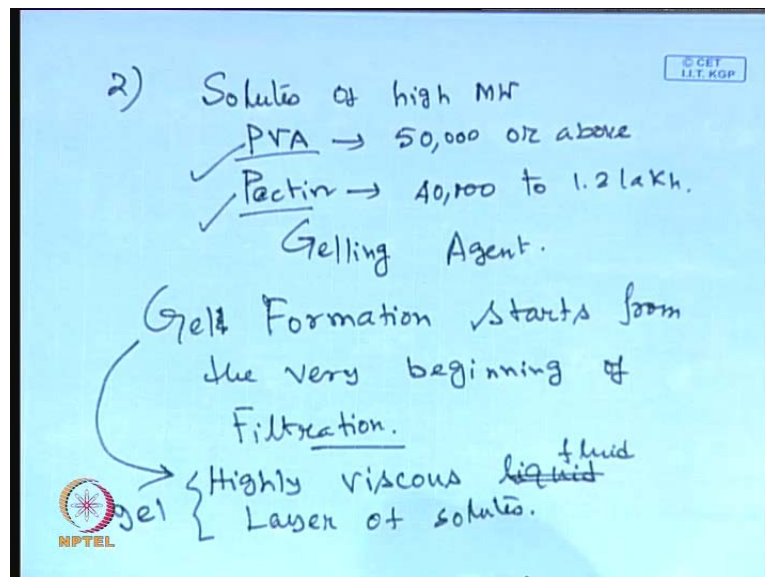 © CET
I.I.T. KGP
2) Solutes of high MW
PVA → 50,000 or above
Pectin → 40,100 to 1.2 lakh.
Gelling Agent.
Gel Formation starts from
the very beginning of
Filtration.
fluid
gel { Highly viscous liquid
Layer of solutes.
NPTEL